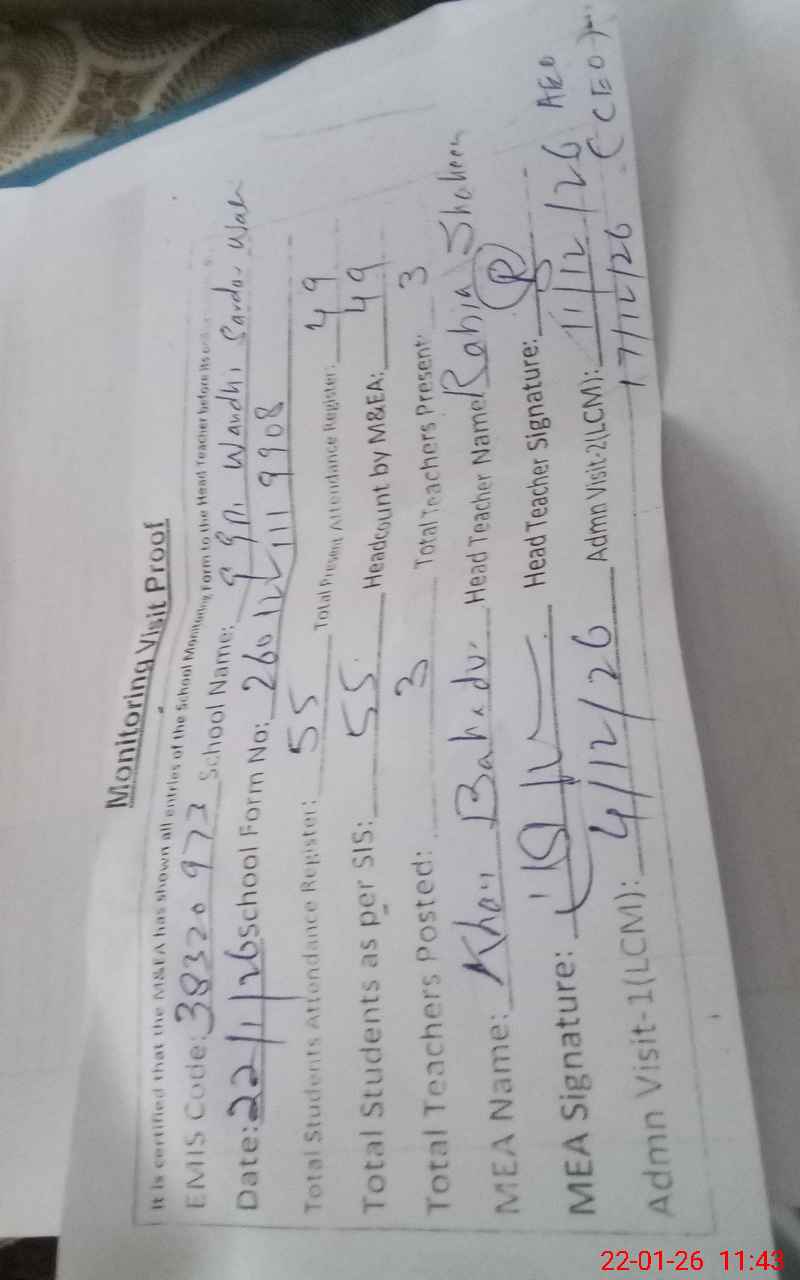 Monitoring Visit Proof
It is certified that the M&EA has shown all entries of the School Monitoring Form to the Head Teacher before its
EMIS Code: 38320973 School Name: ggpi Wandhi Sardar Wali
Date: 22/1/26 school Form No:
Total Students Attendance Register: 55 Total Present Attendance Register: 49
Total Students as per SIS: 55 Headcount by M&EA: 49
Total Teachers Posted: 3 Total Teachers Present: 3
MEA Name: Khan Bahadur Head Teacher Name: Rabia Shaheen
MEA Signature: Head Teacher Signature:
Admn Visit-1(LCM): 4/12/26 Admn Visit-2(LCM): 11/12/26 AEO
17/12/26 (CEO)
22-01-26 11:43